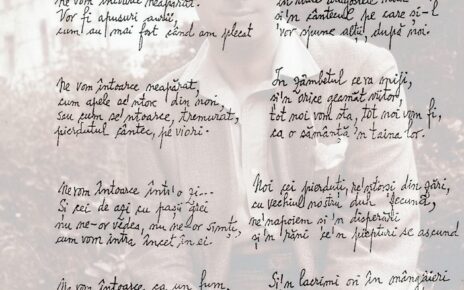 ne vom întoarce neapărat.
Vor fi apusuri aurii,
cum au mai fost când am plecat
Ne vom întoarce neapărat,
cum apele se'ntorc din nori,
sau cum se'ntoarce, tremurat,
pierdutul cântec, pe viori.
Ne vom întoarce într'o zi...
Și cei de azi cu pașii grei
nu ne-or vedea, nu ne-or simți,
cum vom intra încet în ei.
Ne vom întoarce ca un fum,
și'n cântecul pe care și-l
vor spune alții, după noi.
În zâmbetul ce va miji,
și'n orice geamăt viitor,
tot noi vom sta, tot noi vom fi,
ca o sămânță'n taina lor.
Noi cei pierduți, re'ntorși din zări,
cu vechiul nostru duh fecund,
ne'napoiem și'n disperări
și'n răni ce'n piepturi se ascund
Și'n lacrimi ori în mângâieri